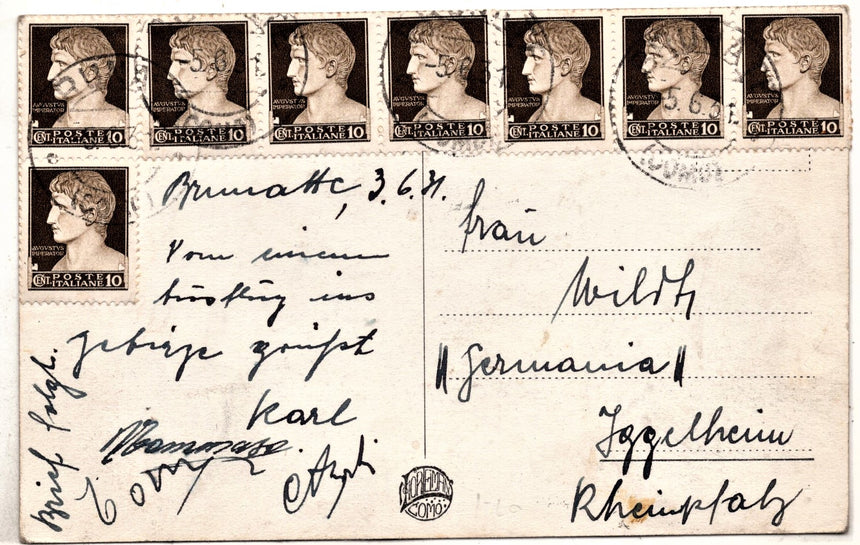 AVGVSTVS
IMPERATOR
CENT. POSTE
ITALIANE 10
AVGVSTVS
IMPERATOR
CENT. POSTE
ITALIANE 10
AVGVSTVS
IMPERATOR
CENT. POSTE
ITALIANE 10
AVGVSTVS
IMPERATOR
CENT. POSTE
ITALIANE 10
AVGVSTVS
IMPERATOR
CENT. POSTE
ITALIANE 10
AVGVSTVS
IMPERATOR
CENT. POSTE
ITALIANE 10
AVGVSTVS
IMPERATOR
CENT. POSTE
ITALIANE 10
AVGVSTVS
IMPERATOR
CENT. POSTE
ITALIANE 10
(COMO)
Brunatte, 3.6.31.
Vom einem
Ausflug ins
Gebirge grüßt
Karl
Brief folgt.
Frau
Wildt
"Germania"
Iggelheim
Rheinpfalz
COMO